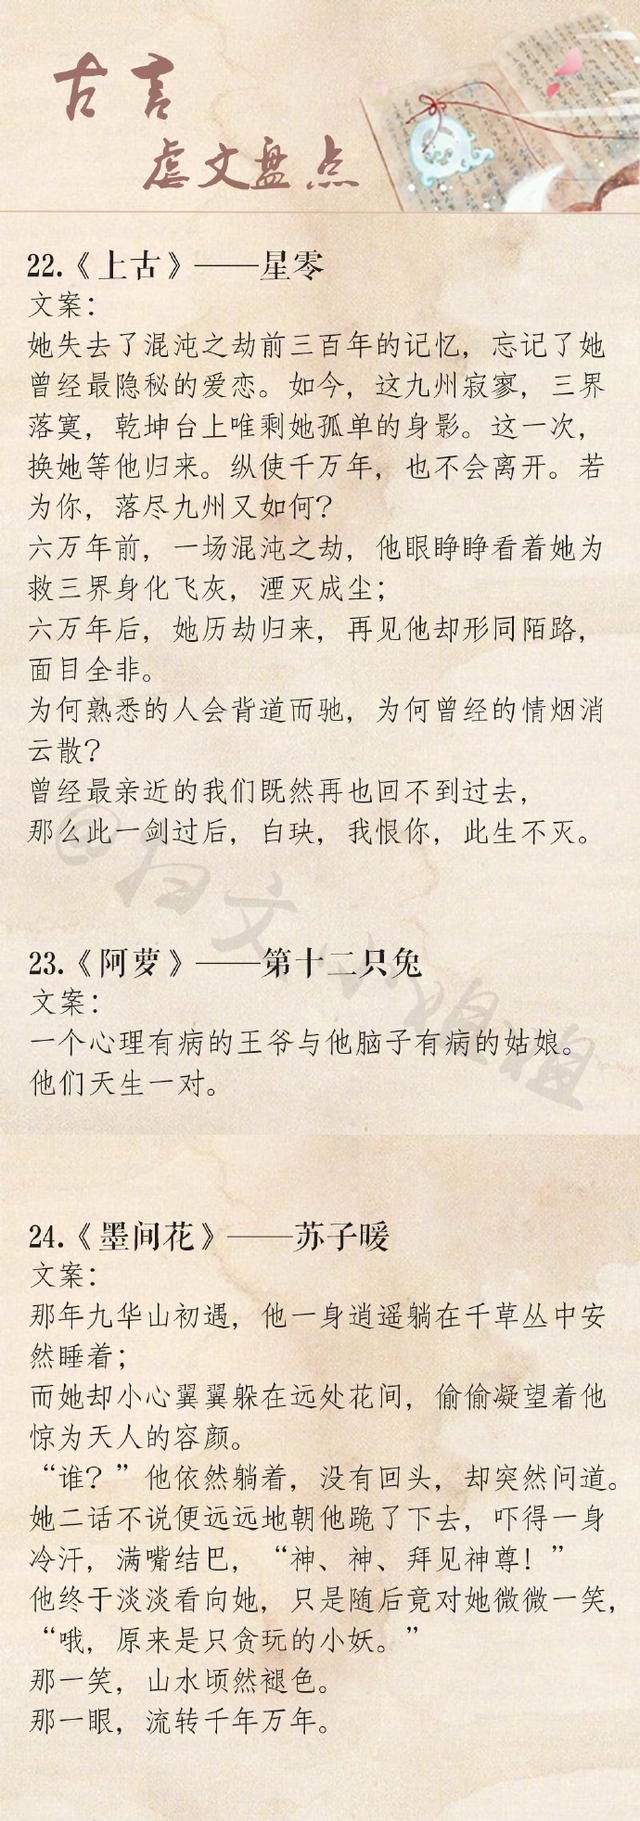 古言
虐文盘点
22.《上古》——星零
文案：
她失去了混沌之劫前三百年的记忆，忘记了她
曾经最隐秘的爱恋。如今，这九州寂寥，三界
落寞，乾坤台上唯剩她孤单的身影。这一次，
换她等他归来。纵使千万年，也不会离开。若
为你，落尽九州又如何？
六万年前，一场混沌之劫，他眼睁睁看着她为
救三界身化飞灰，湮灭成尘；
六万年后，她历劫归来，再见他却形同陌路，
面目全非。
为何熟悉的人会背道而驰，为何曾经的情烟消
云散？
曾经最亲近的我们既然再也回不到过去，
那么此一剑过后，白玦，我恨你，此生不灭。
@扫文小姐姐
23.《阿萝》——第十二只兔
文案：
一个心理有病的王爷与他脑子有病的姑娘。
他们天生一对。
24.《墨间花》——苏子暖
文案：
那年九华山初遇，他一身逍遥躺在千草丛中安
然睡着；
而她却小心翼翼躲在远处花间，偷偷凝望着他
惊为天人的容颜。
“谁？”他依然躺着，没有回头，却突然问道。
她二话不说便远远地朝他跪了下去，吓得一身
冷汗，满嘴结巴，“神、神、拜见神尊！”
他终于淡淡看向她，只是随后竟对她微微一笑，
“哦，原来是只贪玩的小妖。”
那一笑，山水顷然褪色。
那一眼，流转千年万年。